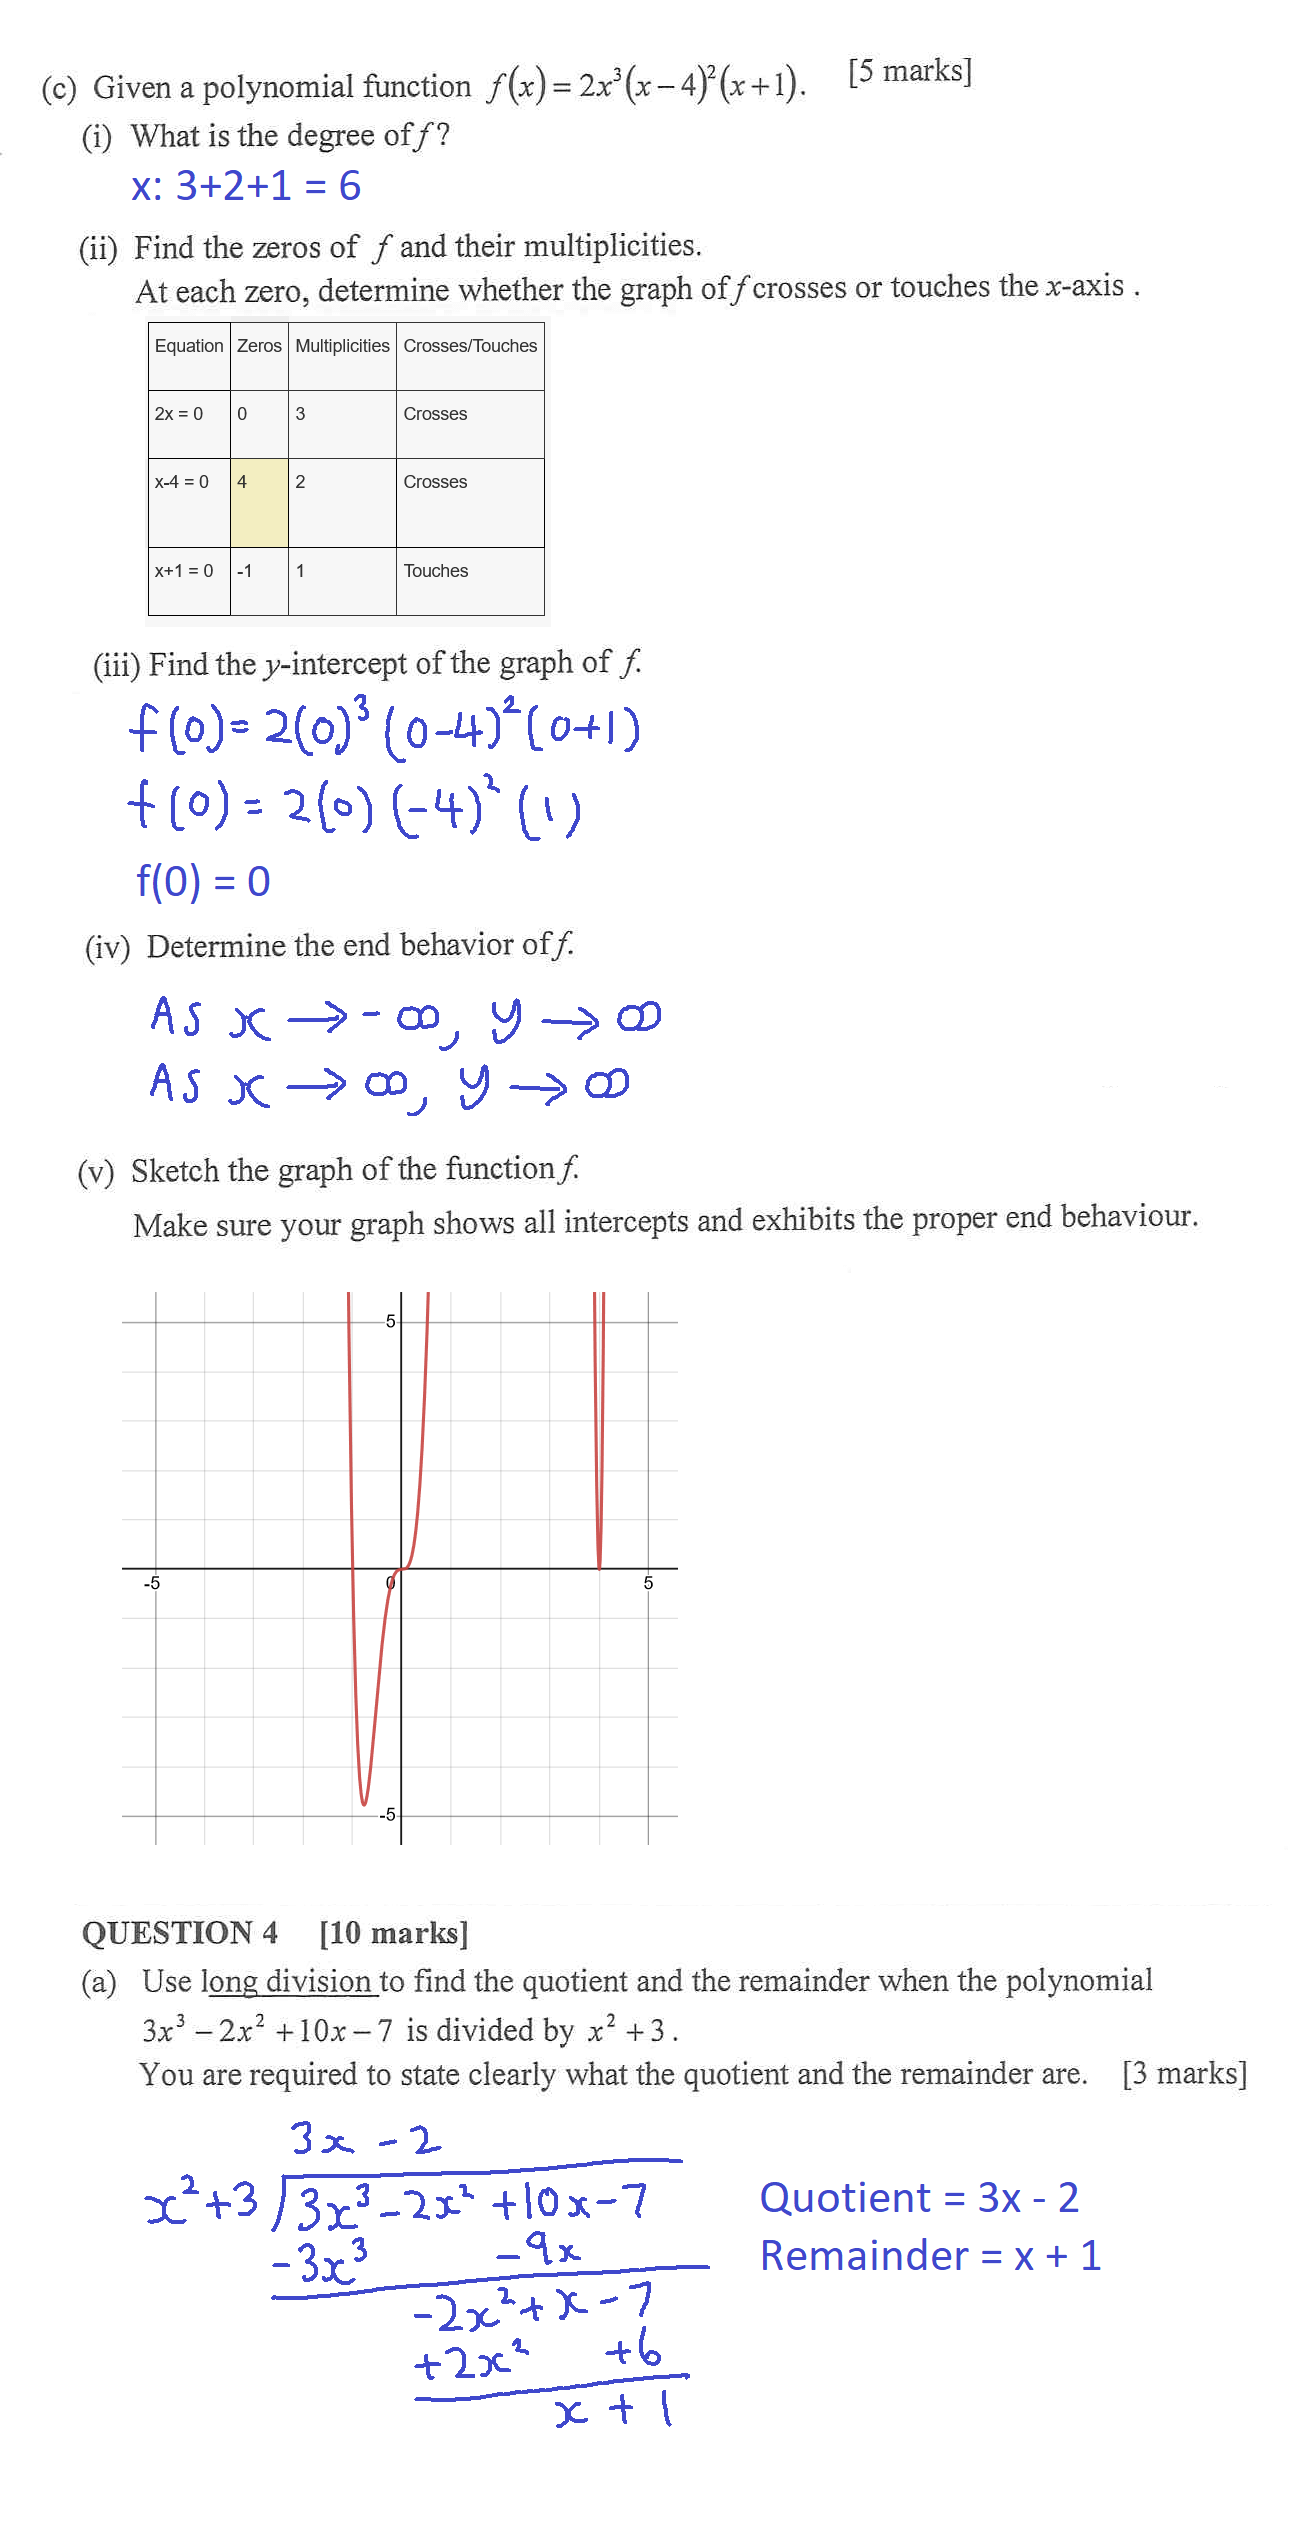 (c) Given a polynomial function f(x) = 2x³(x − 4)²(x + 1). [5 marks]
(i) What is the degree of f ?
x: 3+2+1 = 6
(ii) Find the zeros of f and their multiplicities.
At each zero, determine whether the graph of f crosses or touches the x-axis .
Equation Zeros Multiplicities Crosses/Touches
2x = 0 0 3 Crosses
x-4 = 0 4 2 Crosses
x+1 = 0 -1 1 Touches
(iii) Find the y-intercept of the graph of f.
f(0) = 2(0)³ (0-4)² (0+1)
f(0) = 2(0) (-4)² (1)
f(0) = 0
(iv) Determine the end behavior of f.
As x → - ∞, y → ∞
As x → ∞, y → ∞
(v) Sketch the graph of the function f.
Make sure your graph shows all intercepts and exhibits the proper end behaviour.
5
-5 0 5
-5
QUESTION 4 [10 marks]
(a) Use long division to find the quotient and the remainder when the polynomial
3x³ − 2x² + 10x − 7 is divided by x² + 3 .
You are required to state clearly what the quotient and the remainder are. [3 marks]
3x - 2
x²+3 3x³ - 2x² + 10x - 7 Quotient = 3x - 2
-3x³ -9x Remainder = x + 1
-2x² + x - 7
+2x² +6
x + 1